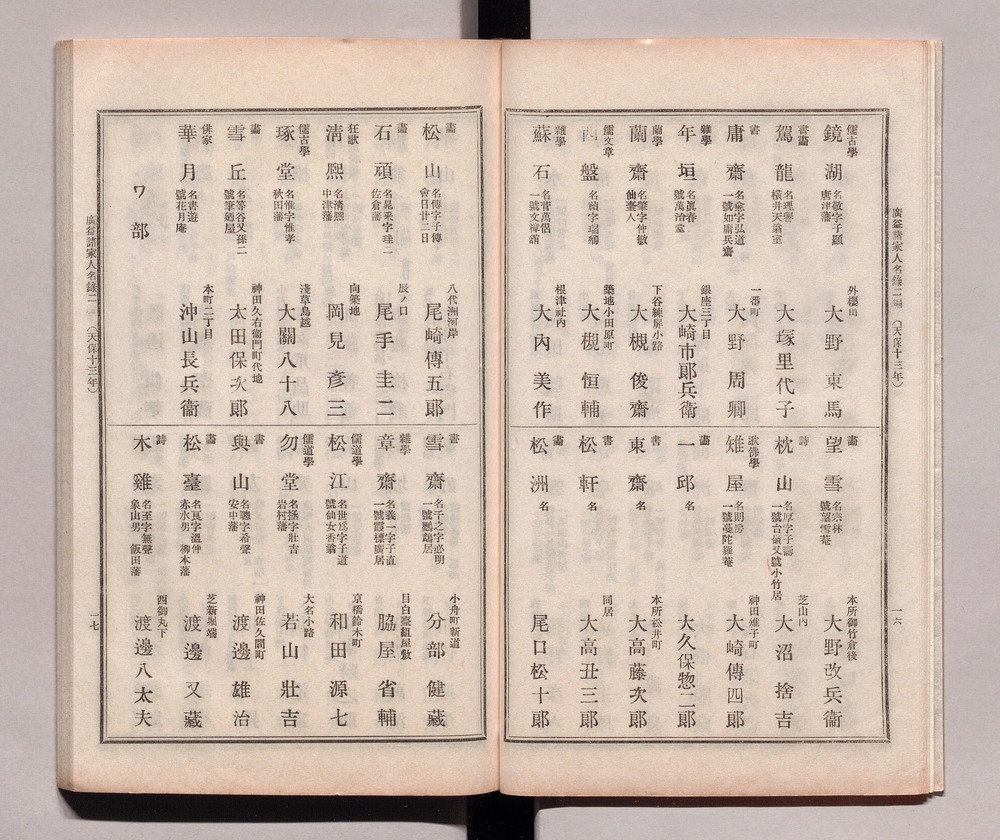 廣益諸家人名錄二編 (天保十三年)
一六
儒古學
鏡湖 名敬字子顯 唐津藩 外櫻田 大野東馬
書畵
駕龍 名理譽 橫井天翁室 大塚里代子
書
庸齋 名愈字弘道 一號如庸兵齋 一番町 大野周卿
雜學
年垣 名眞春 號萬治堂 銀座三丁目 大崎市郞兵衛
蘭學
蘭齋 名肇字仲敏 仙臺人 下谷練屛小路 大槻俊齋
儒文章
盤 名禎字瑞卿 築地小田原町 大槻恒輔
雜學
蘇石 名菅萬侶 一號文樟舘 根津社內 大內美作
畵
望雪 名宗林 號望雪菴 本所御竹倉後 大野改兵衞
詩
枕山 名厚字子壽 一號台嶺又號小竹居 芝山內 大沼捨吉
歌佛學
雉屋 名則房 一號蔓陀羅菴 神田雉子町 大崎傳四郞
畵
一邱 名 大久保惣二郞
書
東齋 名 本所松井町 大高藤次郞
書
松軒 名 同居 大高丑三郞
畵
松洲 名 尾口松十郞
畵
松山 名傳字子傳 會日廿二日 八代洲河岸 尾崎傳五郞
畵
石頑 名晁采字珪二 佐倉藩 辰ノ口 尾手圭二
狂歌
淸熈 名淸熈 中津藩 向築地 岡見彥三
儒古學
琢堂 名惟字惟孝 秋田藩 淺草鳥越 大關八十八
畵
雪丘 名等谷又孫二 號筆廼屋 神田久右衞門町代地 太田保次郞
俳家
華月 名書遊 號花月庵 本町二丁目 沖山長兵衞
ワ部
書
雪齋 名千之字必明 一號鸚鵡居 小舟町新道 分部健藏
雜學
章齋 名義一字子直 一號霞標廣居 目白臺組屋敷 脇屋省輔
儒道學
松江 名世爲字子道 號仙女香翁 京橋鈴木町 和田源七
儒道學
勿堂 名拯字壯吉 岩村藩 大名小路 若山壯吉
書
與山 名聽字希聲 安中藩 神田佐久間町 渡邊雄治
畵
松臺 名良字溫仲 赤水男 柳本藩 芝新堀端 渡邊又藏
詩
木雞 名至字無聲 象山男 飯田藩 西御丸下 渡邊八太夫
廣益諸家人名錄二編 (天保十三年)
一七